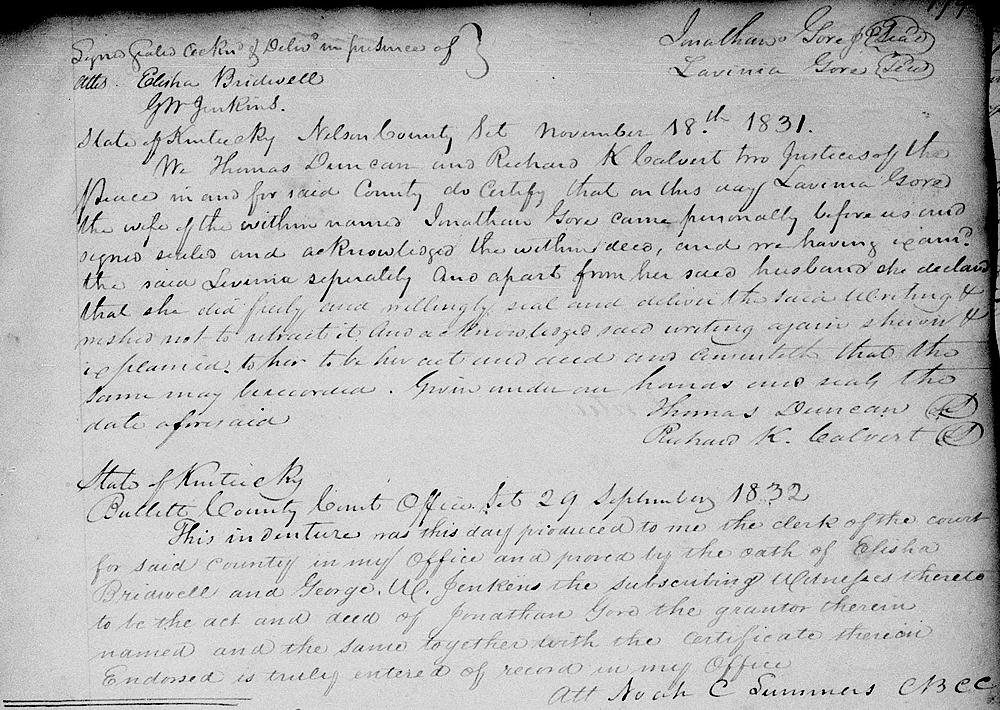 Signed Sealed Acknd & Delivd in presence of
Jonathan Gore Seal
Attes. Elisha Bridwell
Lavinia Gore Seal
GW Jenkins.
State of Kentucky Nelson County Sct November 18th 1831.
We Thomas Duncan and Richard K Calvert two Justices of the
Peace in and for said County do Certify that on this day Lavinia Gore
the wife of the within named Jonathan Gore came personally before us and
signed sealed and acknowledged the within deed, and we having examd
the said Levinia seperately And apart from her said husband she declared
that she did freely and willingly seal and deliver the said Writing &
wished not to retract it And acknowledged said writing again shewn &
explained to her to be her act and deed and consenteth that the
same may be recorded. Given under our hands and seals the
date aforesaid
Thomas Duncan
Richard K. Calvert
State of Kentucky
Bullitt County Court Office Sct 29 September 1832
This indenture was this day produced to me the clerk of the court
for said county in my Office and proved by the oath of Elisha
Bridwell and George. W. Jenkins the subscribing Witnesses thereto
to be the act and deed of Jonathan Gore the grantor therein
named and the same together with the certificate therein
Endorsed is truly entered of record in my Office
Att Noah C Summers CBCC